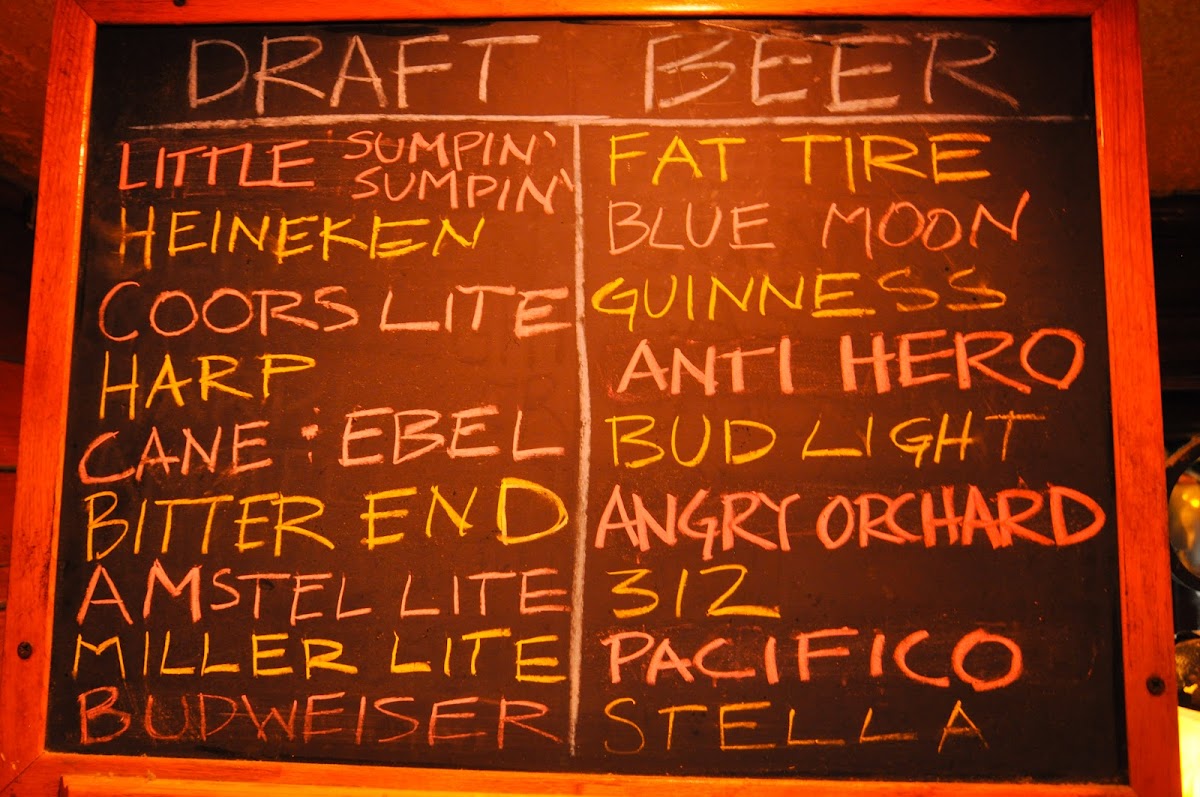 DRAFT BEER
LITTLE SUMPIN'
SUMPIN'
HEINEKEN
COORS LITE
HARP
CANE : EBEL
BITTER END
AMSTEL LITE
MILLER LITE
BUDWEISER
FAT TIRE
BLUE MOON
GUINNESS
ANTI HERO
BUD LIGHT
ANGRY ORCHARD
312
PACIFICO
STELLA